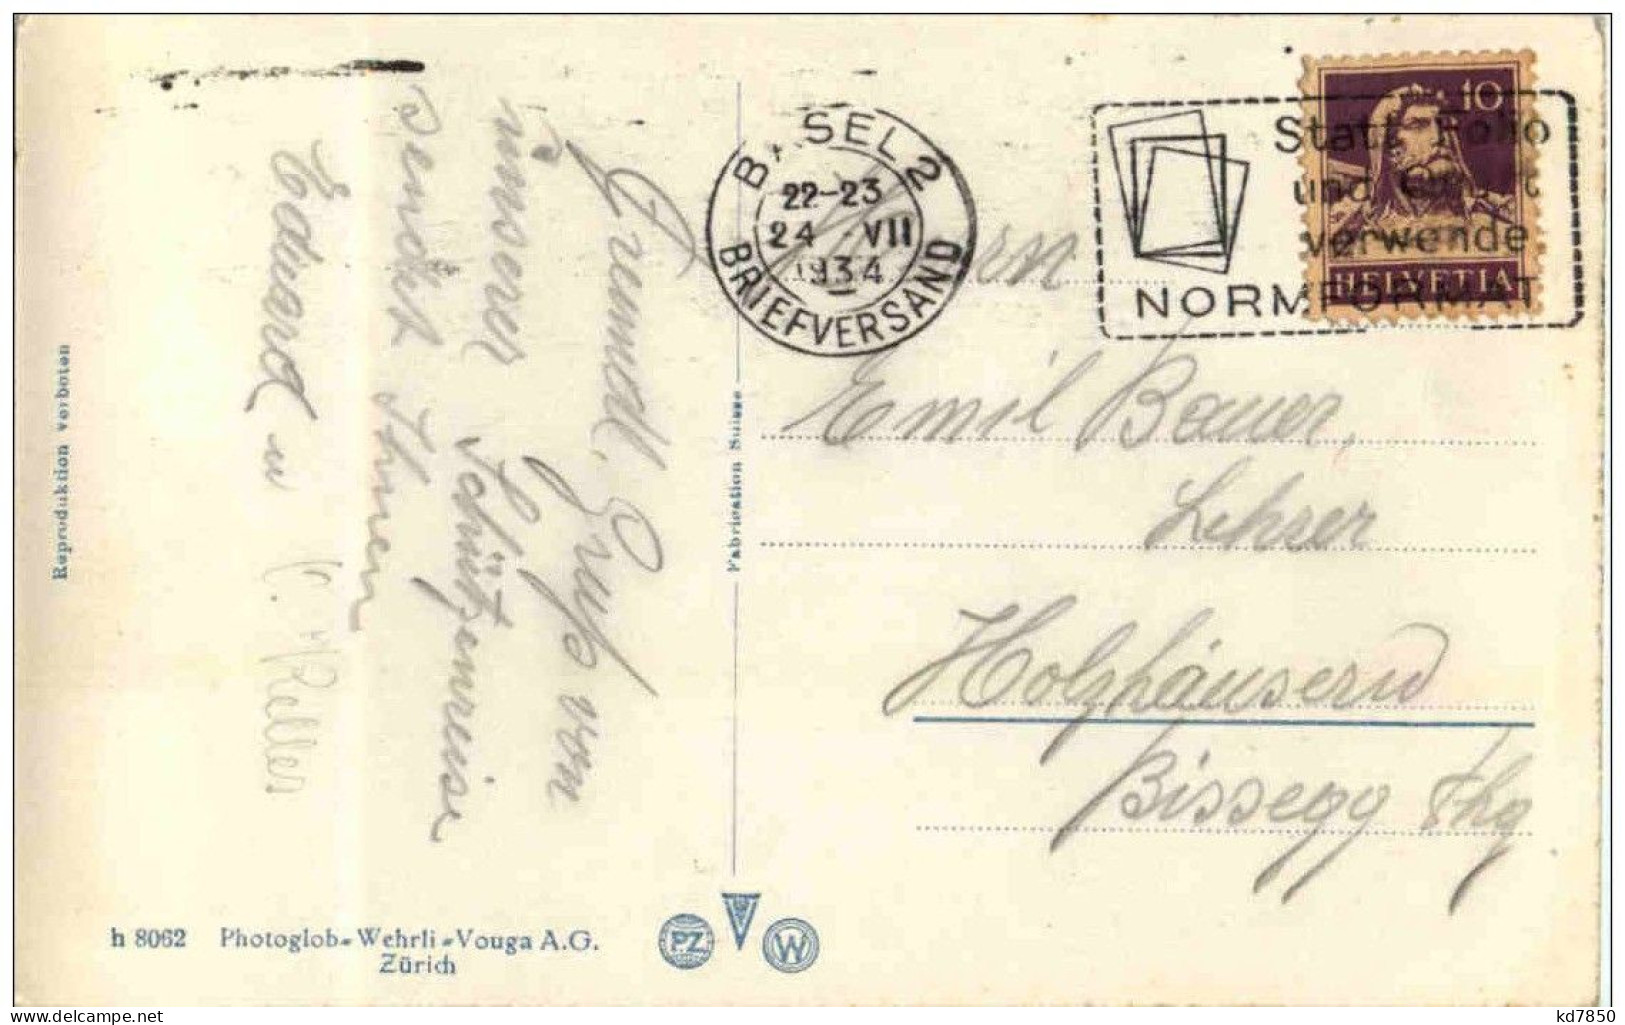 BASEL 2
22-23
24 VII
1934
BRIEFVERSAND
Statt Folio
und
verwende
NORMFORMAT
10
HELVETIA
Freundl. Gruß von
unserer Schützenreise
sendet Ihnen
Eduard u
Keller
Emil Bauer,
Holzhäusern
Bissegg Thg
Reproduktion verboten
Fabrication Suisse
h 8062 Photoglob-Wehrli-Vouga A.G.
Zürich
PZ
V
W
kd7850